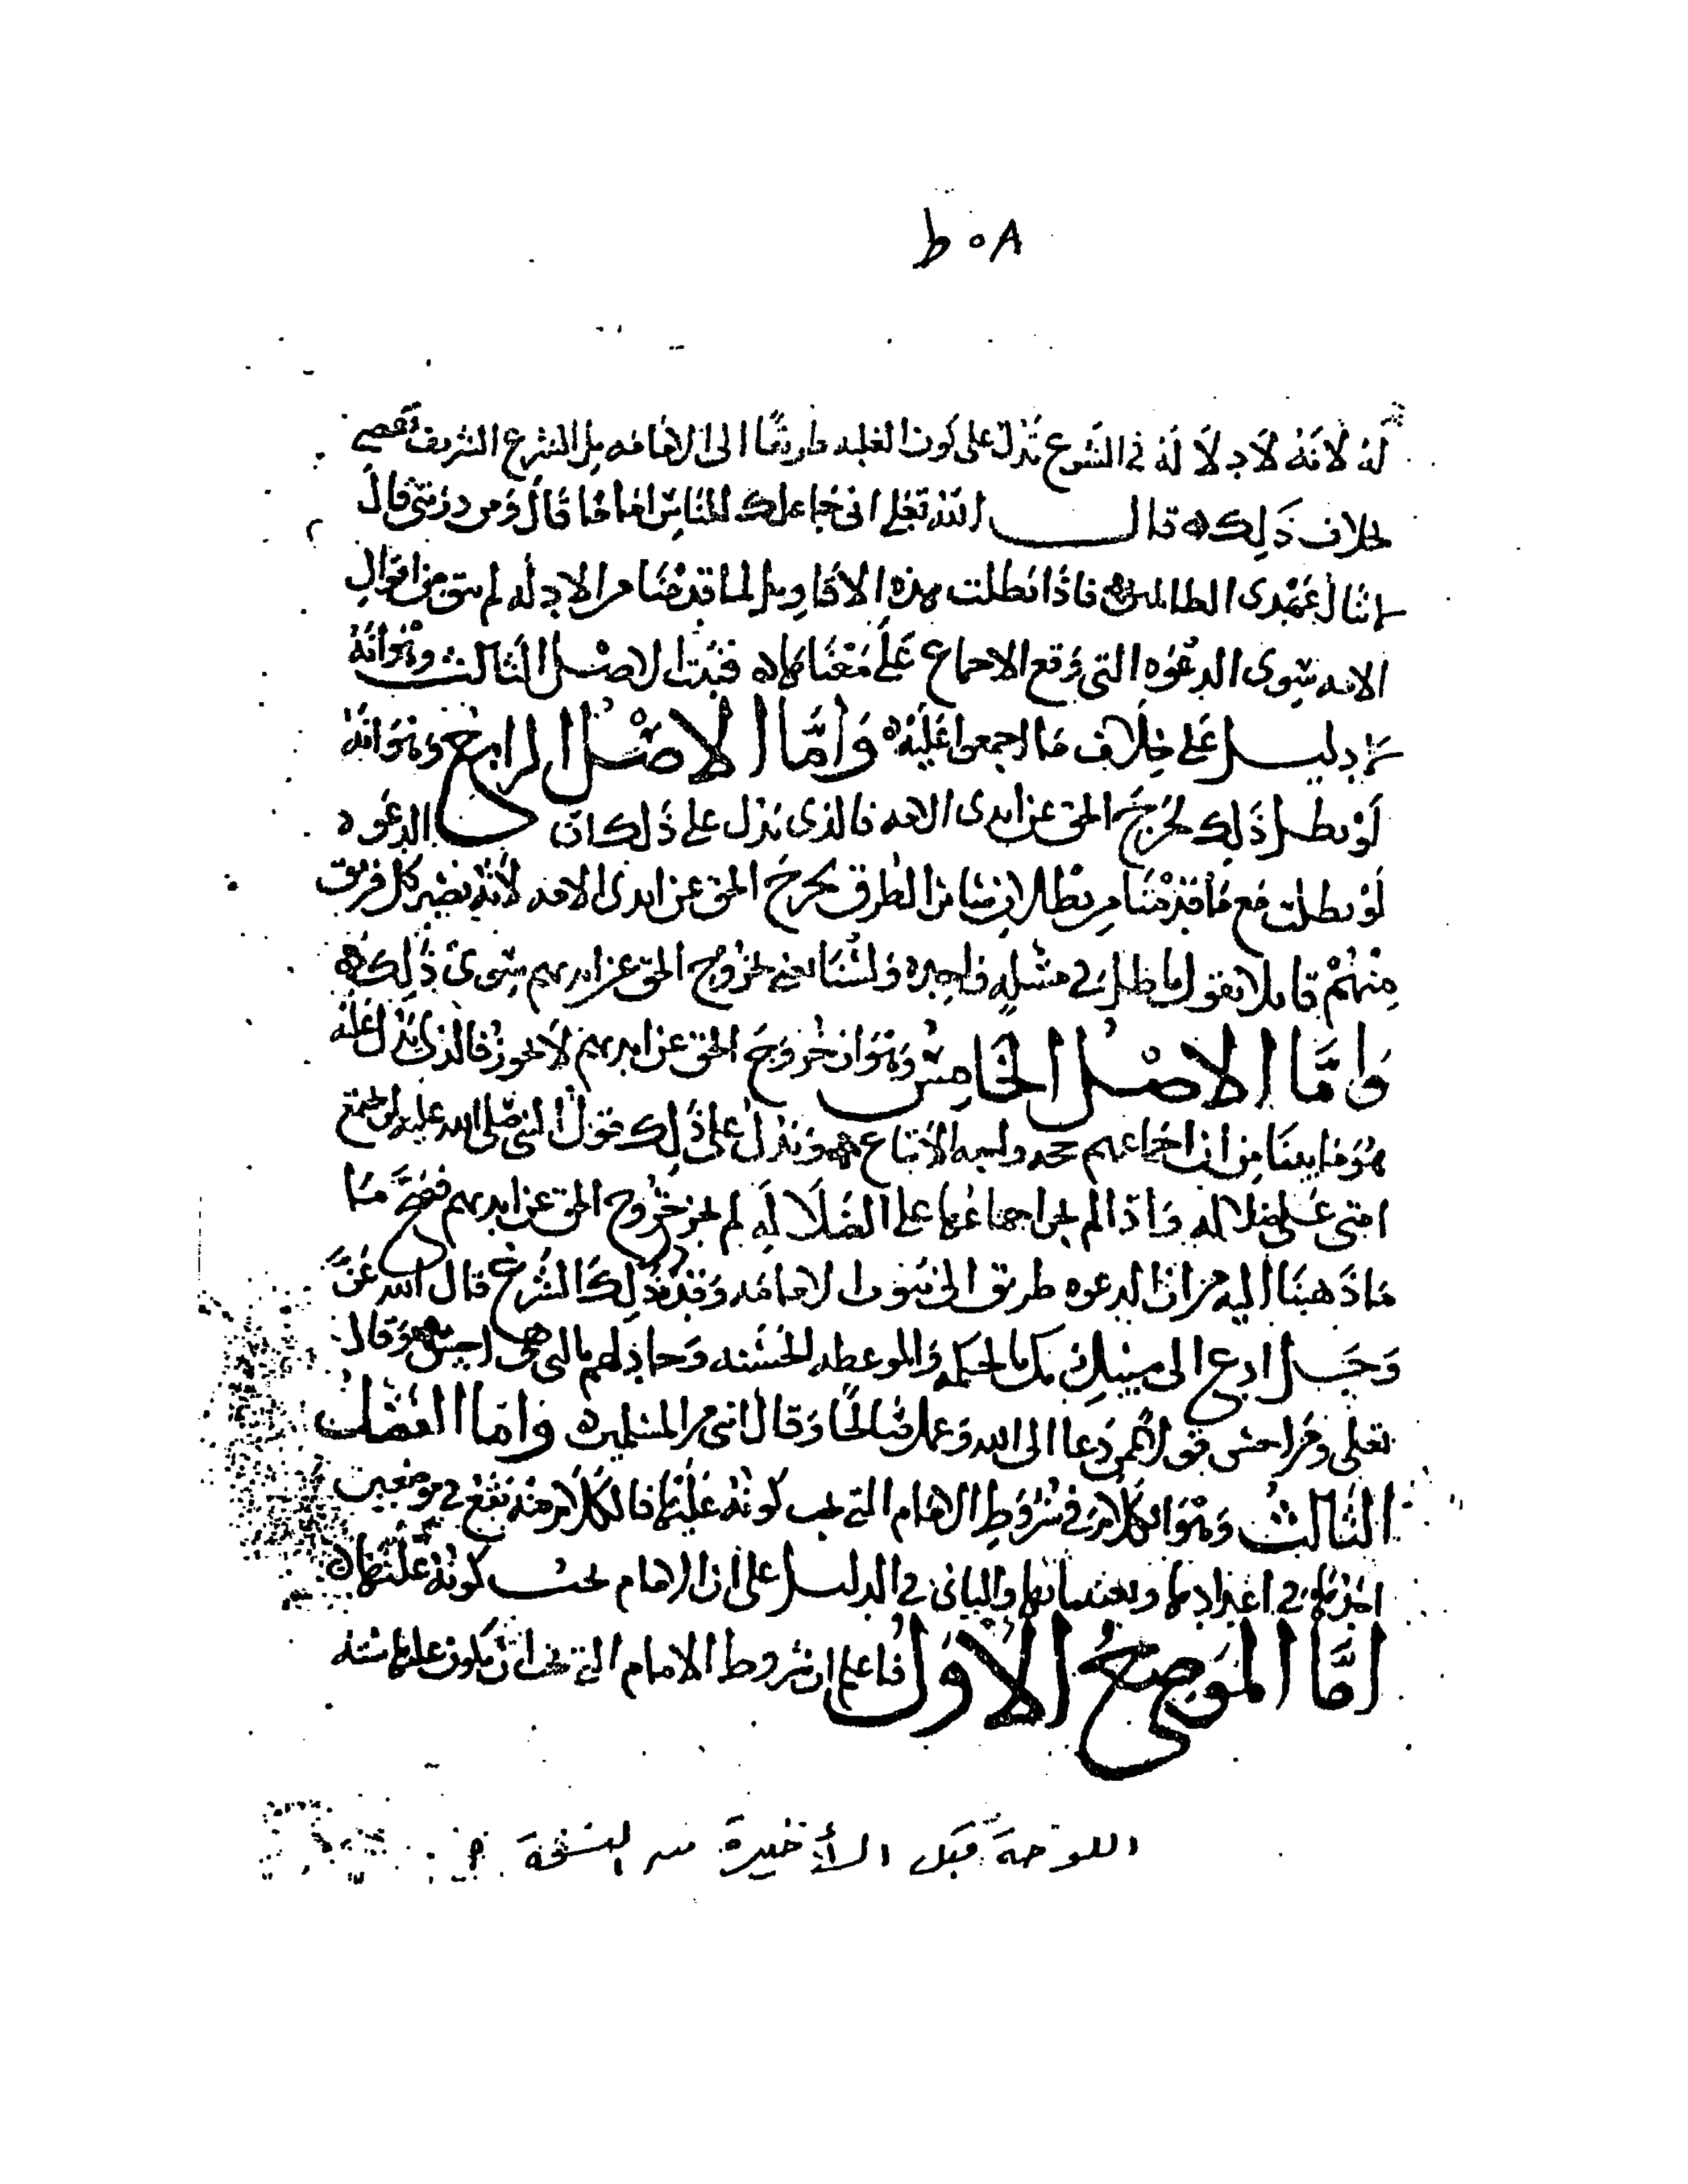 ٥٨ ط
له لانه لا دلالة في الشرع تدل على كون الغلبة طريقا الى الامامة بل الشرع الشريف يقضي
بخلاف ذلك ه قال الله تعلى اني جاعلك للناس اماما قال ومن ذريتي قال
لا ينال عهدي الظالمين فاذا بطلت هذه الاقاويل لما قدمنا من الادلة لم يبق من اقوال
الامة سوى الدعوة التي وقع الاجماع على معناها ه فثبت الاصل الثالث وهو انه
لا دليل على خلاف ما اجمعوا عليه ه واما الاصل الرابع وهو انه
لو بطل ذلك لخرج الحق عن ايدي الامة فالذي يدل على ذلك ان الدعوة
لو بطلت مع ما قدمنا من بطلان سائر الطرق لخرج الحق عن ايدي الامة لانه يصير كل فريق
منهم قائلا بقول باطل في مسئلة واحدة ولسنا نعني بخروج الحق عن ايديهم سوى ذلك ه
واما الاصل الخامس وهو ان خروج الحق عن ايديهم لا يجوز فالذي يدل عليه
هو ما بينا من ان اجماعهم حجة واجبة الاتباع ويدل على ذلك قول النبي صلى الله عليه لن تجتمع
امتي على ضلالة واذا لم يجز اجماعها على الضلالة لم يجز خروج الحق عن ايديهم فصح ما
ما ذهبنا اليه من ان الدعوة طريق الى ثبوت الامامة وقد ذلك الشرع قال الله عز
وجل ادع الى سبيل ربك بالحكمة والموعظة الحسنة وجادلهم بالتي هي احسن وقال
تعلى ومن احسن قولا ممن دعا الى الله وعمل صالحا وقال انني من المسلمين ه واما الفصل
الثالث وهو الكلام في شروط الامام التي يجب كونه عليها فالكلام منه يقع في موضعين
احدهما في اعدادها وتعيينها والثاني في الدليل على ان الامام يجب كونه عليها ه
اما الموضع الاول فاعلم ان شروط الامام التي يجب ان يكون عليها ستة
اللوحة قبل الأخيرة من النسخة